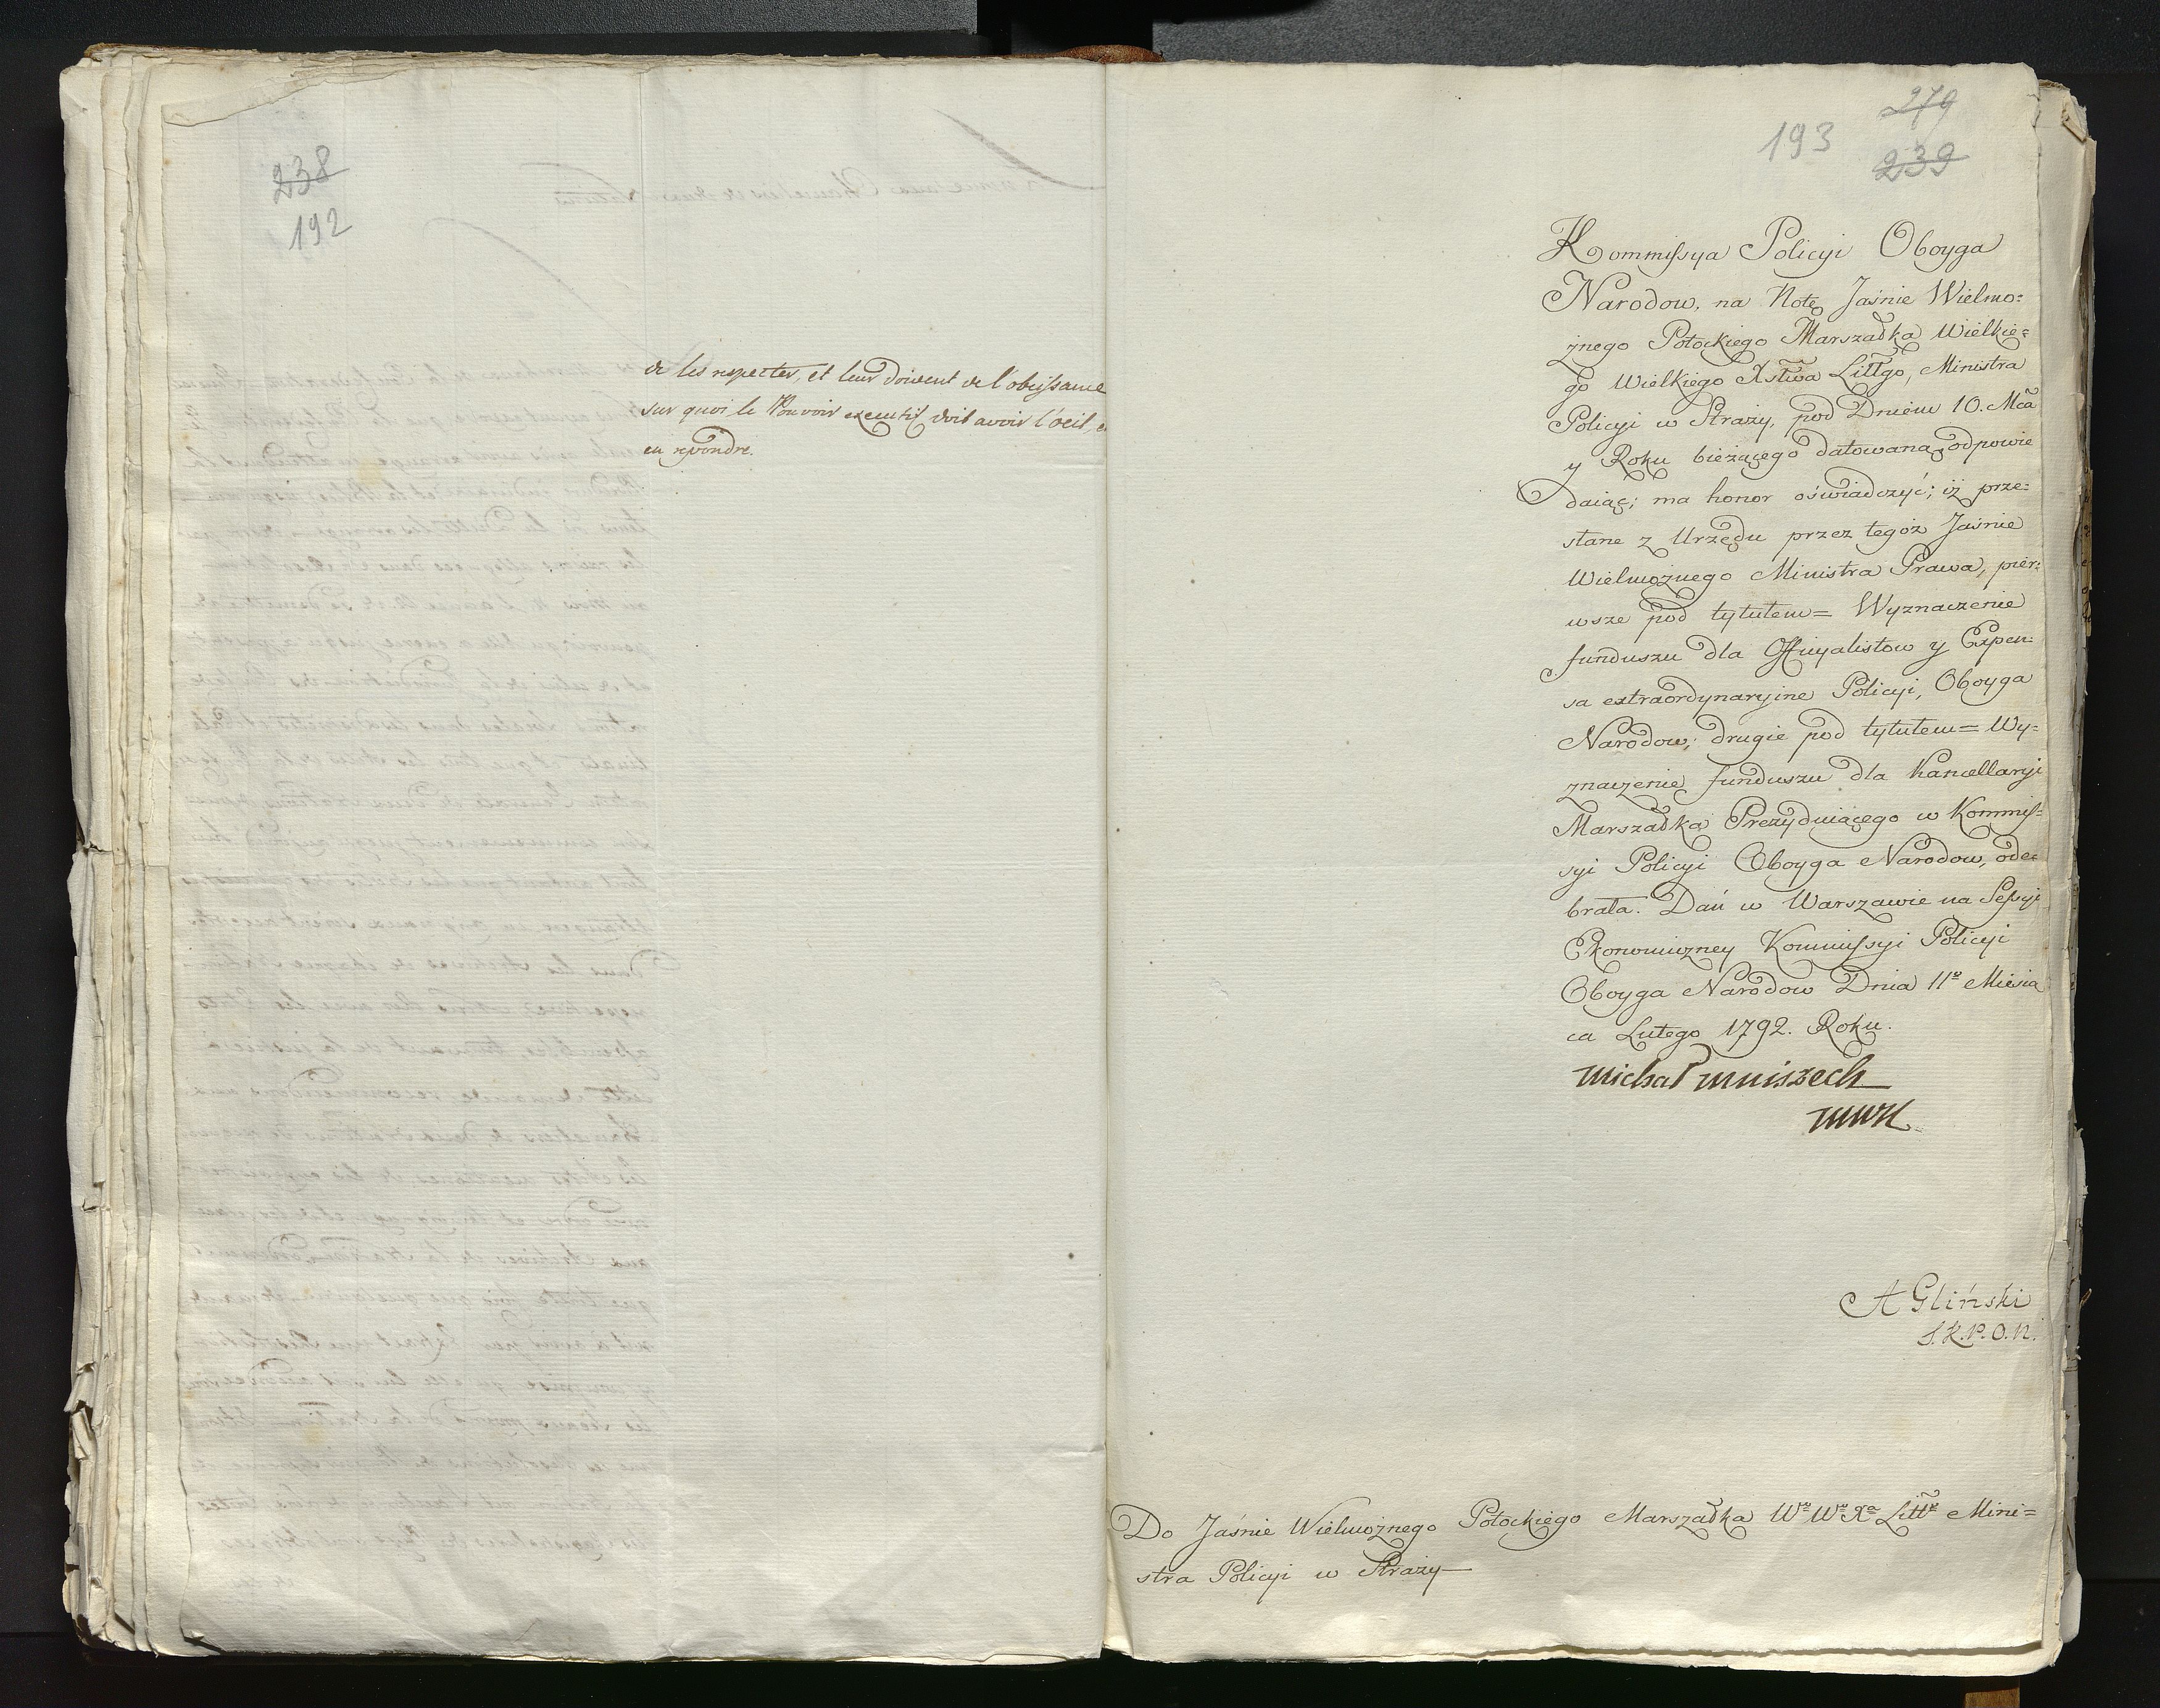 238
192
de les respecter, et leur doivent de l'obeissance
sur quoi le Pouvoir executif doit avoir l'oeil, e
en repondre.
279
193
239
Kommissya Policyi Oboyga
Narodow, na Notę Jaśnie Wielmo=
żnego Potockiego Marszałka Wielkie=
go Wielkiego Xstwa Littgo, Ministra
Policyi w Straży, pod Dniem 10. Mca
y Roku bieżącego datowaną odpowie
daiąc; ma honor oświadczyć; iż prze=
słane z Urzędu przez tegoż Jaśnie
Wielmożnego Ministra Prawa, pier=
wsze pod tytułem= Wyznaczenie
funduszu dla Officyalistow y Expen=
sa extraordynaryine Policyi, Oboyga
Narodow; drugie pod tytułem= Wy=
znaczenie funduszu dla Kancellaryi
Marszałka Prezyduiącego w Kommis=
syi Policyi Oboyga Narodow, ode=
brała. Dań w Warszawie na Sessyi
Ekonomiczney Kommissyi Policyi
Oboyga Narodow Dnia 11go Miesią
ca Lutego 1792. Roku.
Michał Mniszech
MWK
A Gliński
S.K.P.O.N.
Do Jaśnie Wielmożnego Potockiego Marszałka Wgo Wgo Xa Littgo Mini=
stra Policyi w Straży